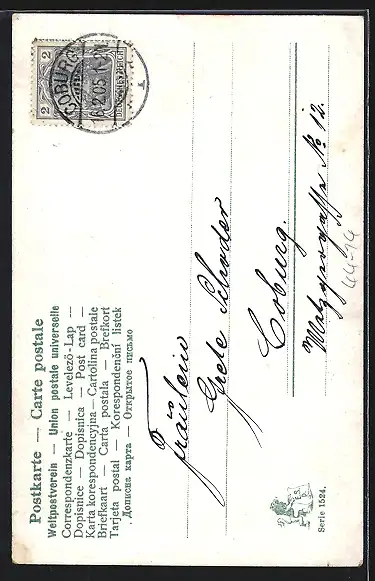 Postkarte — Carte postale
Weltpostverein — Union postale universelle
Correspondenzkarte — Levelező-Lap —
Dopisnice — Dopisnica — Post card —
Karta korespondencyjna — Cartolina postale
Briefkaart — Carta postala — Brefkort
Tarjeta postal — Korespondenční listek
Дописна карта — Открытое письмо
2 2
DEUTSCHES REICH
COBURG
16.2.05.1-2N
1
Fräulein
Grete Schroder
Coburg.
Metzgergasse No 12.
44-14
E.S.
D.
Serie 1524.